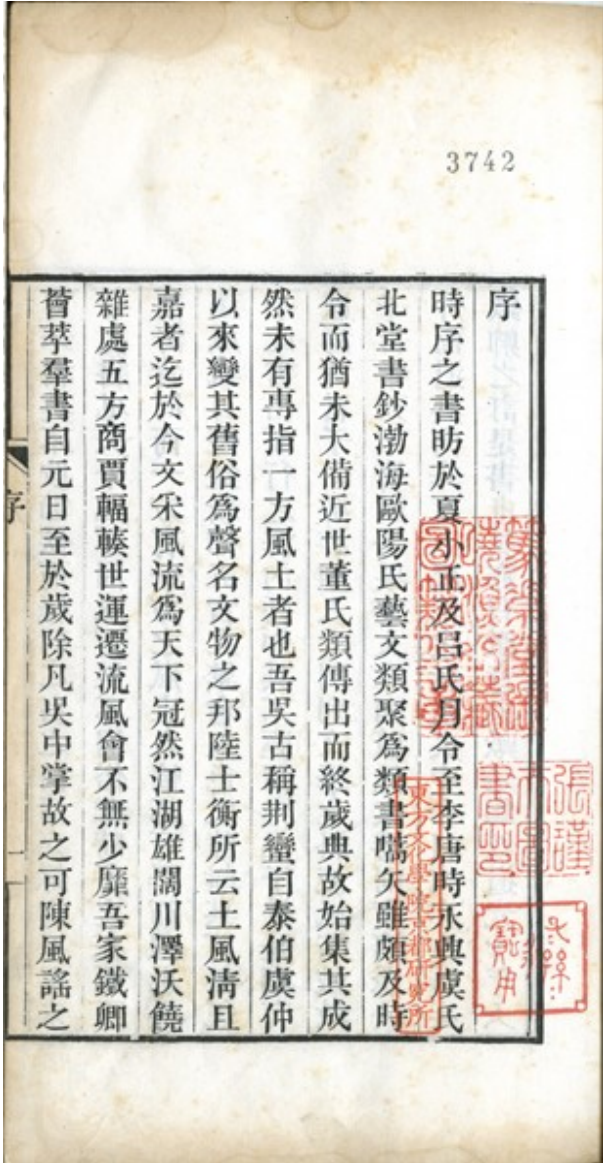 3742
序
時序之書昉於夏小正及呂氏月令至李唐時永興虞氏
北堂書鈔渤海歐陽氏藝文類聚爲類書嚆矢雖頗及時
令而猶未大備近世董氏類傳出而終歲典故始集其成
然未有專指一方風土者也吾吳古稱荆蠻自泰伯虞仲
以來變其舊俗爲聲名文物之邦陸士衡所云土風淸且
嘉者迄於今文采風流爲天下冠然江湖雄闊川澤沃饒
雜處五方商賈輻輳世運遷流風會不無少靡吾家鐵卿
薈萃羣書自元日至於歲除凡吳中掌故之可陳風謠之
序
一
東方文化學院京都研究所